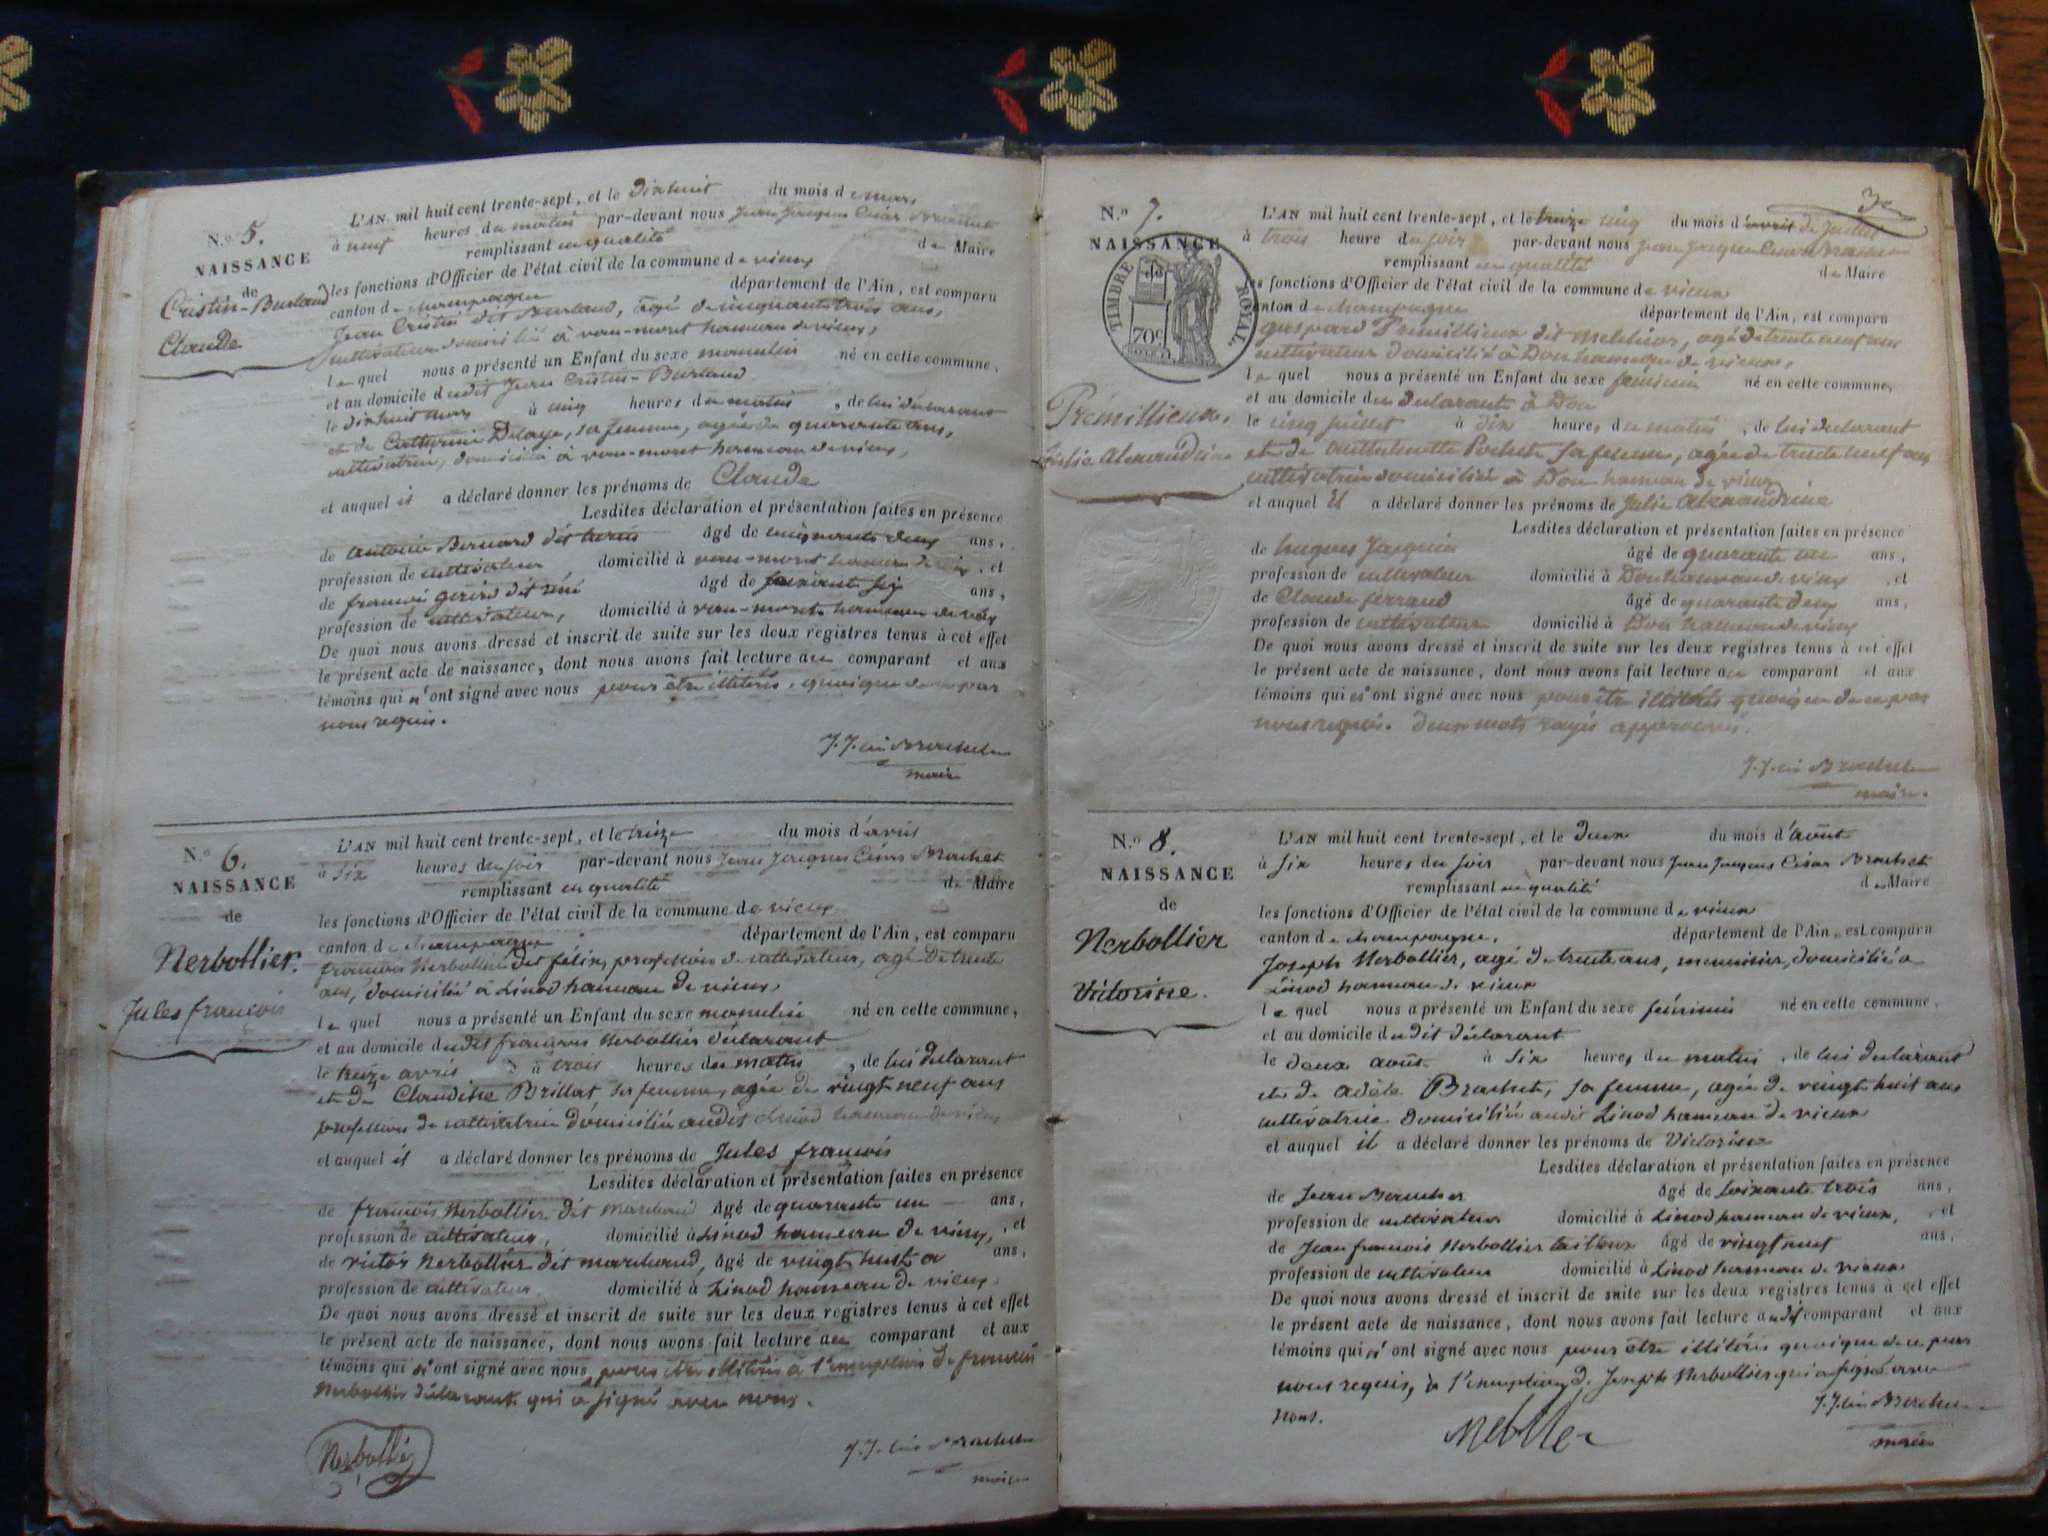 N.o 5.
NAISSANCE
de
Cristin-Burland
Claude
L'AN mil huit cent trente-sept, et le dixhuit du mois de mars
à neuf heures du matin par-devant nous Jean Jacques César Brachet
remplissant en qualité de Maire
les fonctions d'Officier de l'état civil de la commune de vieux
canton de champagne département de l'Ain, est comparu
Jean Cristin dit Burland, agé de cinquante trois ans,
cultivateur domicilié à vau-mort hameau de vieux,
lequel nous a présenté un Enfant du sexe masculin né en cette commune,
et au domicile dudit Jean Cristin-Burland
le dixhuit mars à cinq heures du matin, de lui déclarant
et de Catherine Delaye, sa femme, agée de quarante ans,
cultivatrice, domiciliée à vau-mort hameau de vieux,
et auquel il a déclaré donner les prénoms de Claude
Lesdites déclaration et présentation faites en présence
de antoine Bernard dit âgé de cinquante deux ans,
profession de cultivateur domicilié à vau-mort hameau de vieux, et
de françois dit âgé de soixante six ans,
profession de cultivateur, domicilié à vau-mort hameau de vieux
De quoi nous avons dressé et inscrit de suite sur les deux registres tenus à cet effet
le présent acte de naissance, dont nous avons fait lecture au comparant et aux
témoins qui n'ont signé avec nous pour être illitérés, quoique de ce par
nous requis.
J. J. César Brachet
maire
N.o 6.
NAISSANCE
de
Nerbollier.
Jules françois
L'AN mil huit cent trente-sept, et le treize du mois d'avril
à six heures du soir par-devant nous Jean Jacques César Brachet
remplissant en qualité de Maire
les fonctions d'Officier de l'état civil de la commune de vieux
canton de champagne département de l'Ain, est comparu
françois Nerbollier dit félix, profession de cultivateur, agé de trente
ans, domicilié à Linod hameau de vieux,
lequel nous a présenté un Enfant du sexe masculin né en cette commune,
et au domicile dudit françois Nerbollier déclarant
le treize avril à trois heures du matin, de lui déclarant
et de Claudine Brillat sa femme, agée de vingt neuf ans
profession de cultivatrice domiciliée audit Linod hameau de vieux
et auquel il a déclaré donner les prénoms de Jules françois
Lesdites déclaration et présentation faites en présence
de françois Nerbollier dit marchand âgé de quarante un ans,
profession de cultivateur, domicilié à Linod hameau de vieux, et
de victor Nerbollier dit marchand, âgé de vingt huit a ans,
profession de cultivateur domicilié à Linod hameau de vieux,
De quoi nous avons dressé et inscrit de suite sur les deux registres tenus à cet effet
le présent acte de naissance, dont nous avons fait lecture au comparant et aux
témoins qui n'ont signé avec nous pour être illitérés à l'exception de françois
Nerbollier déclarant qui a signé avec nous.
Nerbollier
J. J. César Brachet
maire
3
N.o 7.
NAISSANCE
de
TIMBRE ROYAL.
70c
Prémillieux,
Julie Alexandrine
L'AN mil huit cent trente-sept, et le treize cinq du mois d'avril de Juillet
à trois heure du soir par-devant nous Jean Jacques César Brachet
remplissant en qualité de Maire
les fonctions d'Officier de l'état civil de la commune de vieux
canton de champagne département de l'Ain, est comparu
gaspard Prémillieux dit melchior, agé de trente neuf ans
cultivateur domicilié à Don hameau de vieux,
lequel nous a présenté un Enfant du sexe féminin né en cette commune,
et au domicile du déclarant à Don
le cinq juillet à dix heures du matin, de lui déclarant
et de sa femme, agée de trente neuf ans
cultivatrice domiciliée à Don hameau de vieux
et auquel il a déclaré donner les prénoms de Julie Alexandrine
Lesdites déclaration et présentation faites en présence
de hugues Jacquin âgé de quarante un ans,
profession de cultivateur domicilié à Don hameau de vieux, et
de Claude ferrand âgé de quarante deux ans,
profession de cultivateur domicilié à Don hameau de vieux
De quoi nous avons dressé et inscrit de suite sur les deux registres tenus à cet effet
le présent acte de naissance, dont nous avons fait lecture au comparant et aux
témoins qui n'ont signé avec nous pour être illitérés quoique de ce par
nous requis. deux mots rayés approuvés.
J. J. César Brachet
maire.
N.o 8.
NAISSANCE
de
Nerbollier
Victorine.
L'AN mil huit cent trente-sept, et le deux du mois d'août
à six heures du soir par-devant nous Jean Jacques César Brachet
remplissant en qualité de Maire
les fonctions d'Officier de l'état civil de la commune de vieux
canton de champagne, département de l'Ain, est comparu
Joseph Nerbollier, agé de trente ans, menuisier, domicilié à
Linod hameau de vieux
lequel nous a présenté un Enfant du sexe féminin né en cette commune,
et au domicile dudit déclarant
le deux août à six heures du matin, de lui déclarant
et de adèle Brachet, sa femme, agée de vingt huit ans
cultivatrice domiciliée audit Linod hameau de vieux
et auquel il a déclaré donner les prénoms de Victorine
Lesdites déclaration et présentation faites en présence
de Jean Brachet âgé de soixante trois ans,
profession de cultivateur domicilié à Linod hameau de vieux, et
de Jean françois Nerbollier tailleur âgé de vingt neuf ans,
profession de cultivateur domicilié à Linod hameau de vieux
De quoi nous avons dressé et inscrit de suite sur les deux registres tenus à cet effet
le présent acte de naissance, dont nous avons fait lecture audit comparant et aux
témoins qui n'ont signé avec nous pour être illitérés quoique de ce par
nous requis, à l'exception de Joseph Nerbollier qui a signé avec
nous.
J. J. César Brachet
maire